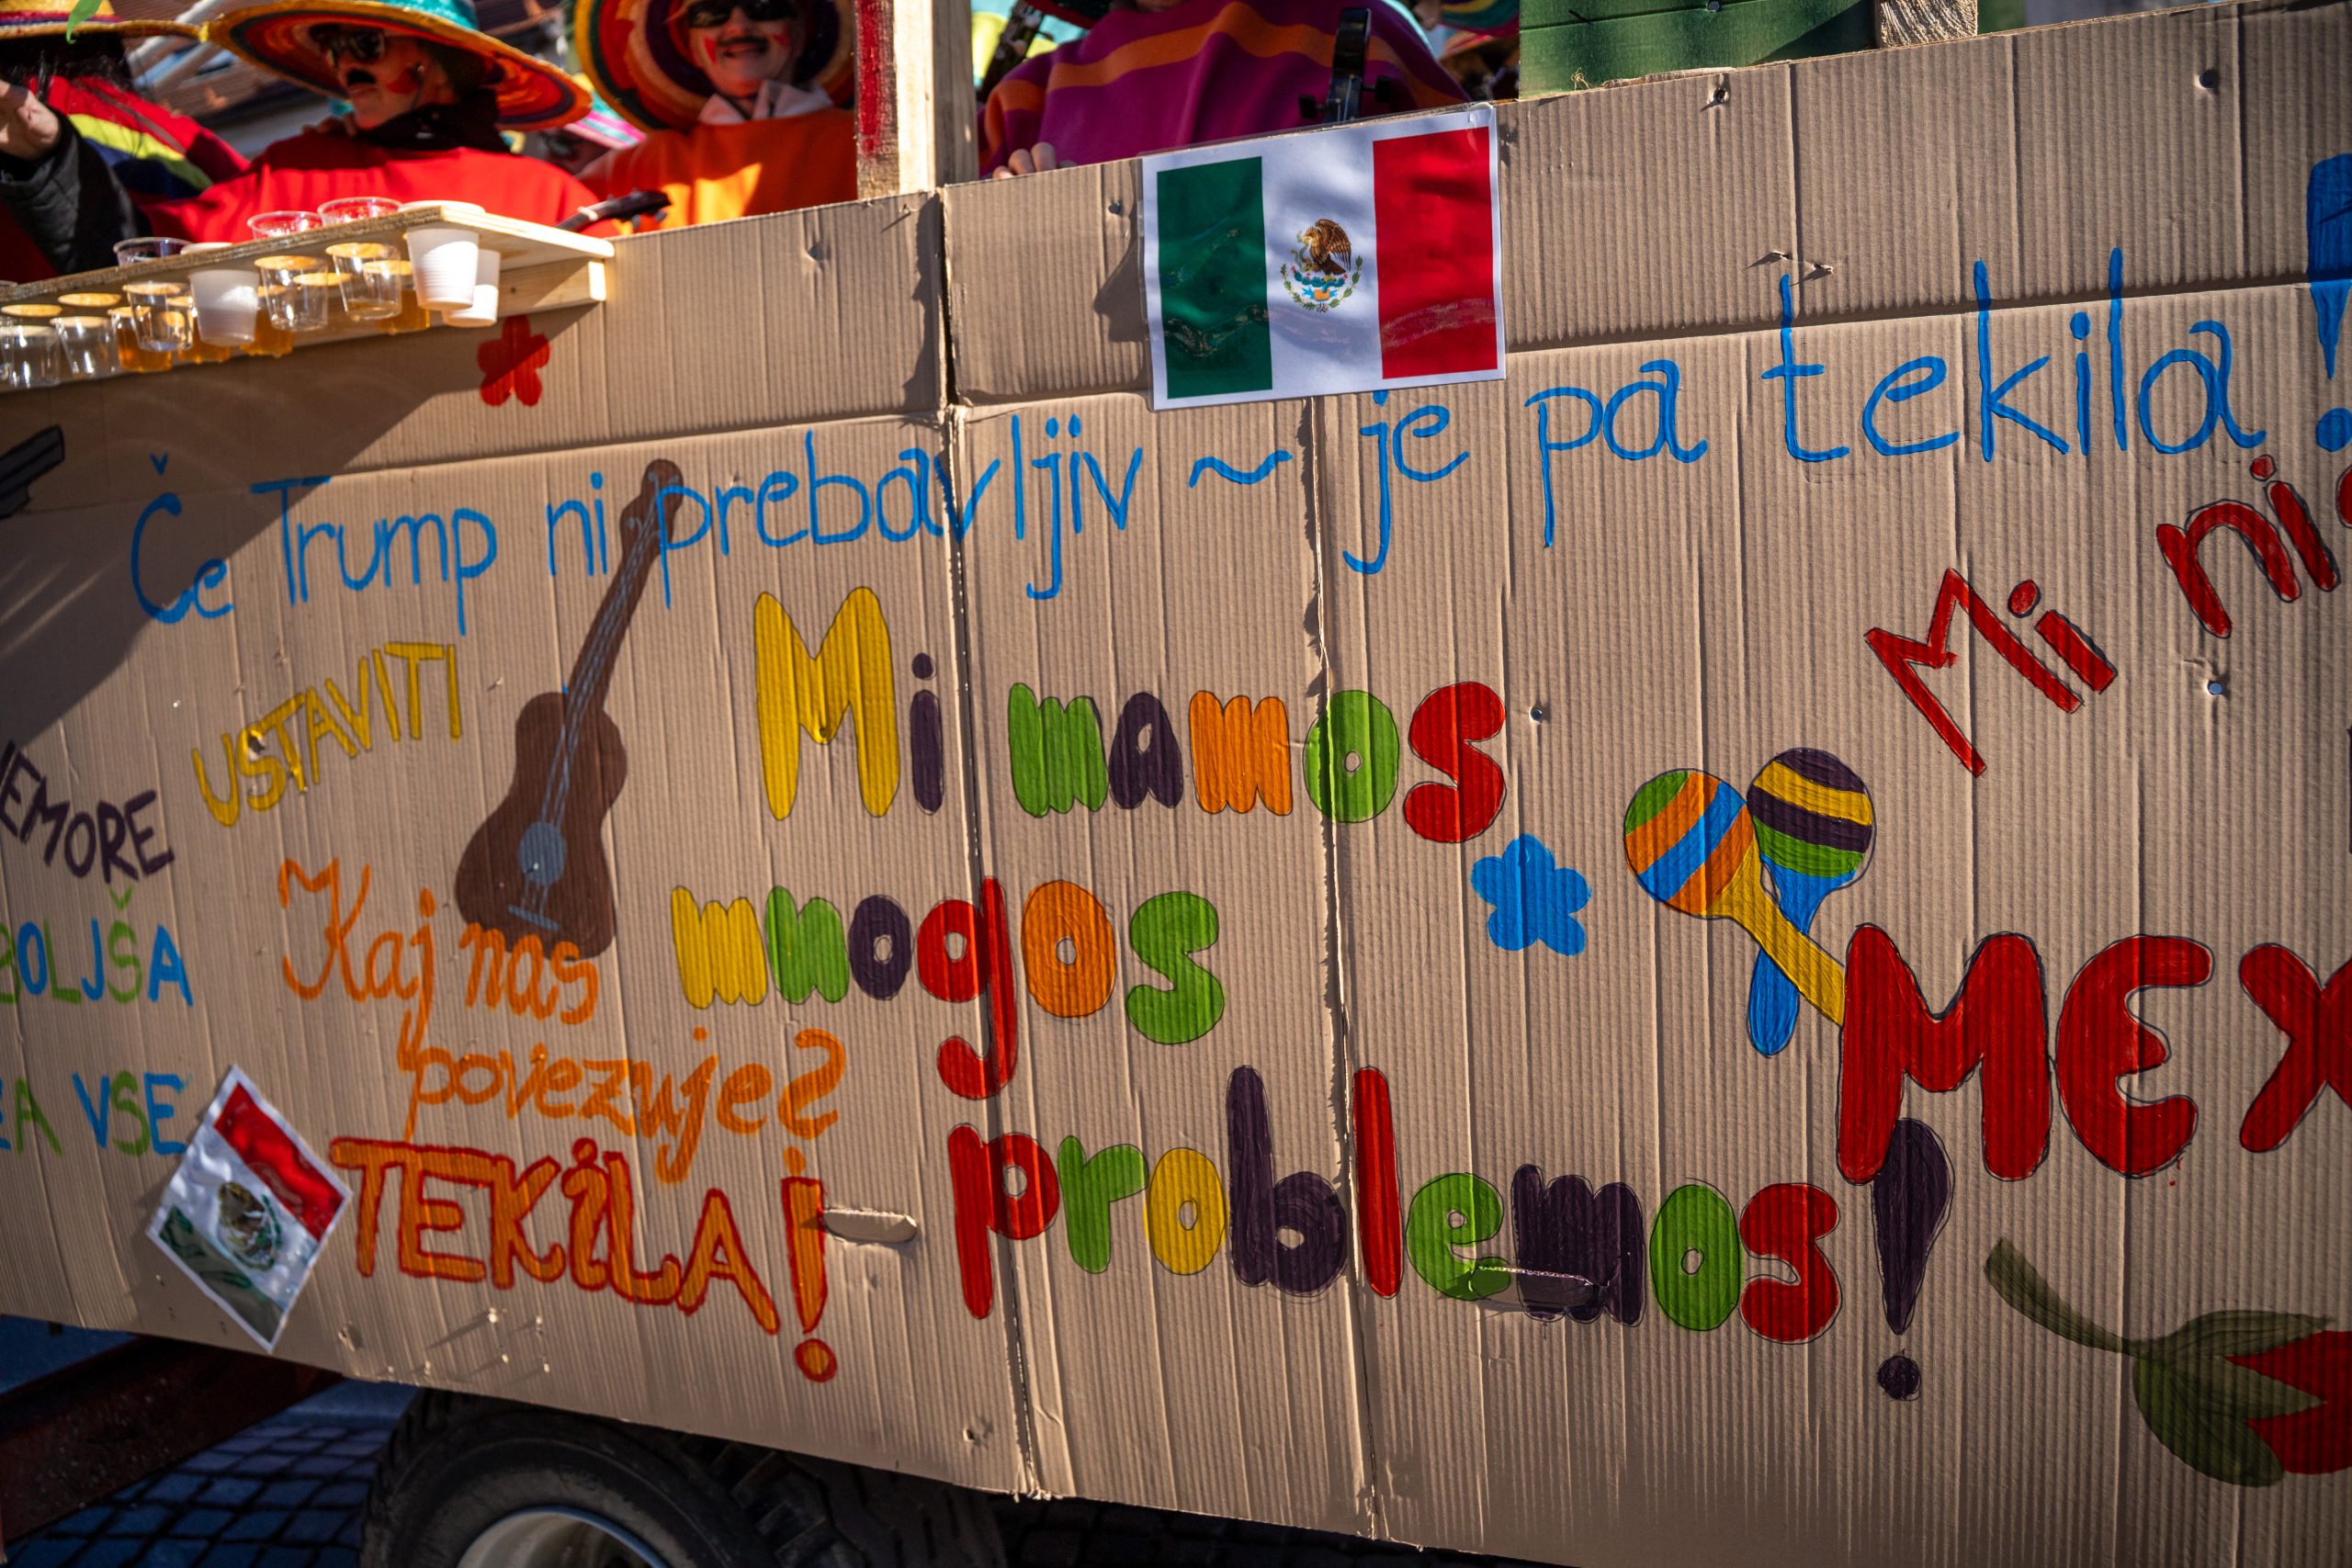 Če Trump ni prebavljiv ~ je pa tekila!
USTAVITI
BOLJŠA
ZA VSE
Kaj nas
povezuje?
TEKiLA!
Mi mamos
mnogos
problemos!
Mi
MEX